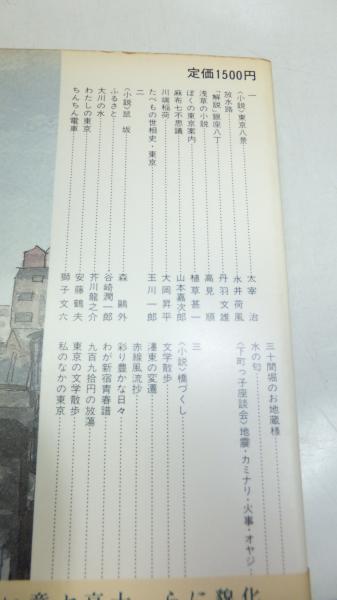 定価1500円
一
〈小説〉東京八景……太宰 治
放水路……永井荷風
「解説」銀座八丁……丹羽文雄
浅草の小説……高見 順
ぼくの東京案内……植草甚一
麻布七不思議……山本嘉次郎
川端稲荷……大岡昇平
たべもの世相史・東京……玉川一郎
二
〈小説〉鼠坂……森 鷗外
ふるさと……谷崎潤一郎
大川の水……芥川龍之介
わたしの東京……安藤鶴夫
ちんちん電車……獅子文六
三十間堀のお地蔵様
水の匂
〈下町っ子座談会〉地震・カミナリ・火事・オヤジ
三
〈小説〉橋づくし
文学散歩
濹東の変遷
赤線風流抄
彩り豊かな日々
わが新宿青春譜
九百九拾円の放蕩
東京の文学散歩
私のなかの東京